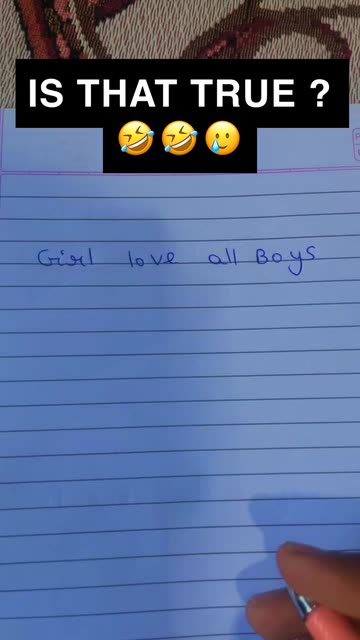 IS THAT TRUE ?
🤣🤣🥲
Girl love all Boys